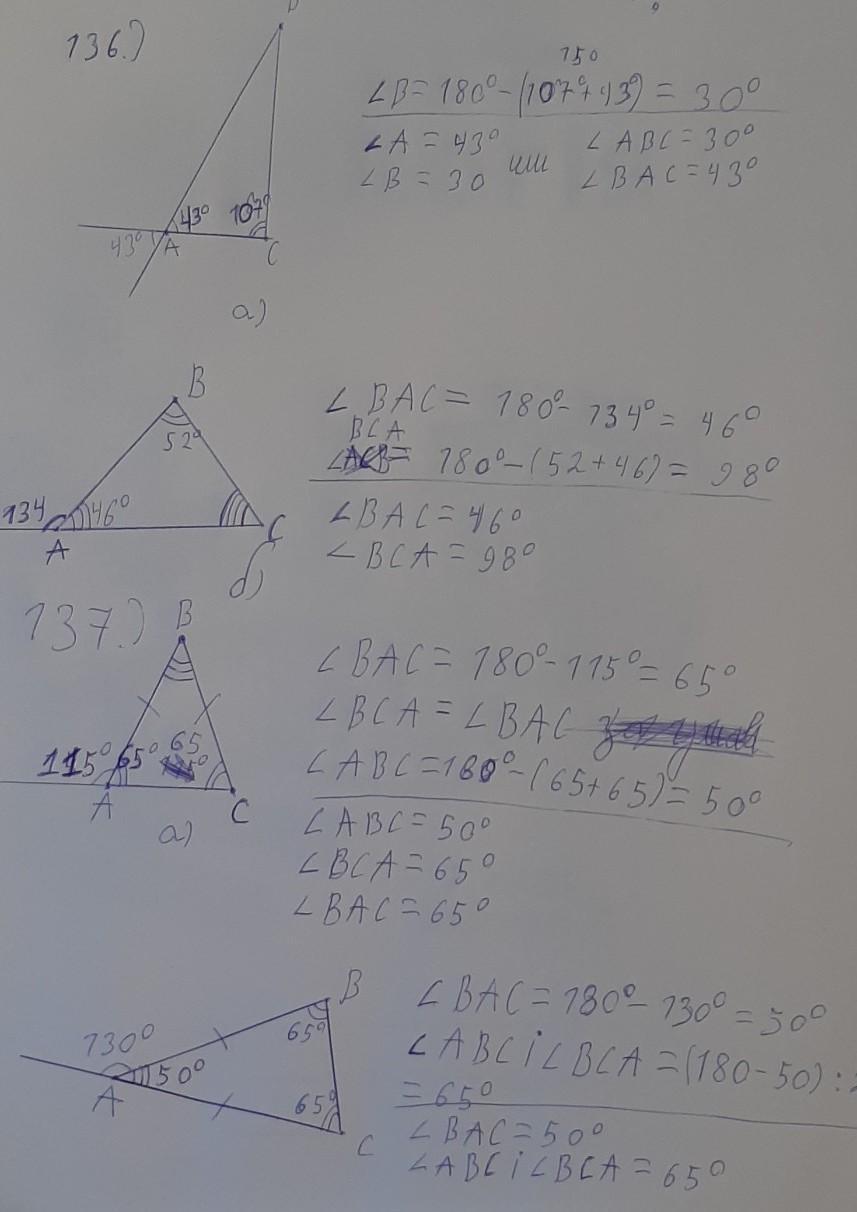 136.)
150
∠B = 180° - (107° + 43°) = 30°
∠A = 43° ∠ABC = 30°
∠B = 30 или ∠BAC = 43°
43° 107°
43° A C
а)
B
52°
134 46°
A C
б)
∠BAC = 180° - 134° = 46°
BCA
∠ = 180° - (52 + 46) = 98°
∠BAC = 46°
∠BCA = 98°
137.)
B
65
115° 65°
A C
а)
∠BAC = 180° - 115° = 65°
∠BCA = ∠BAC
∠ABC = 180° - (65 + 65) = 50°
∠ABC = 50°
∠BCA = 65°
∠BAC = 65°
B
65°
130°
50°
A 65°
C
∠BAC = 180° - 130° = 50°
∠ABC i ∠BCA = (180 - 50) :
= 65°
∠BAC = 50°
∠ABC i ∠BCA = 65°